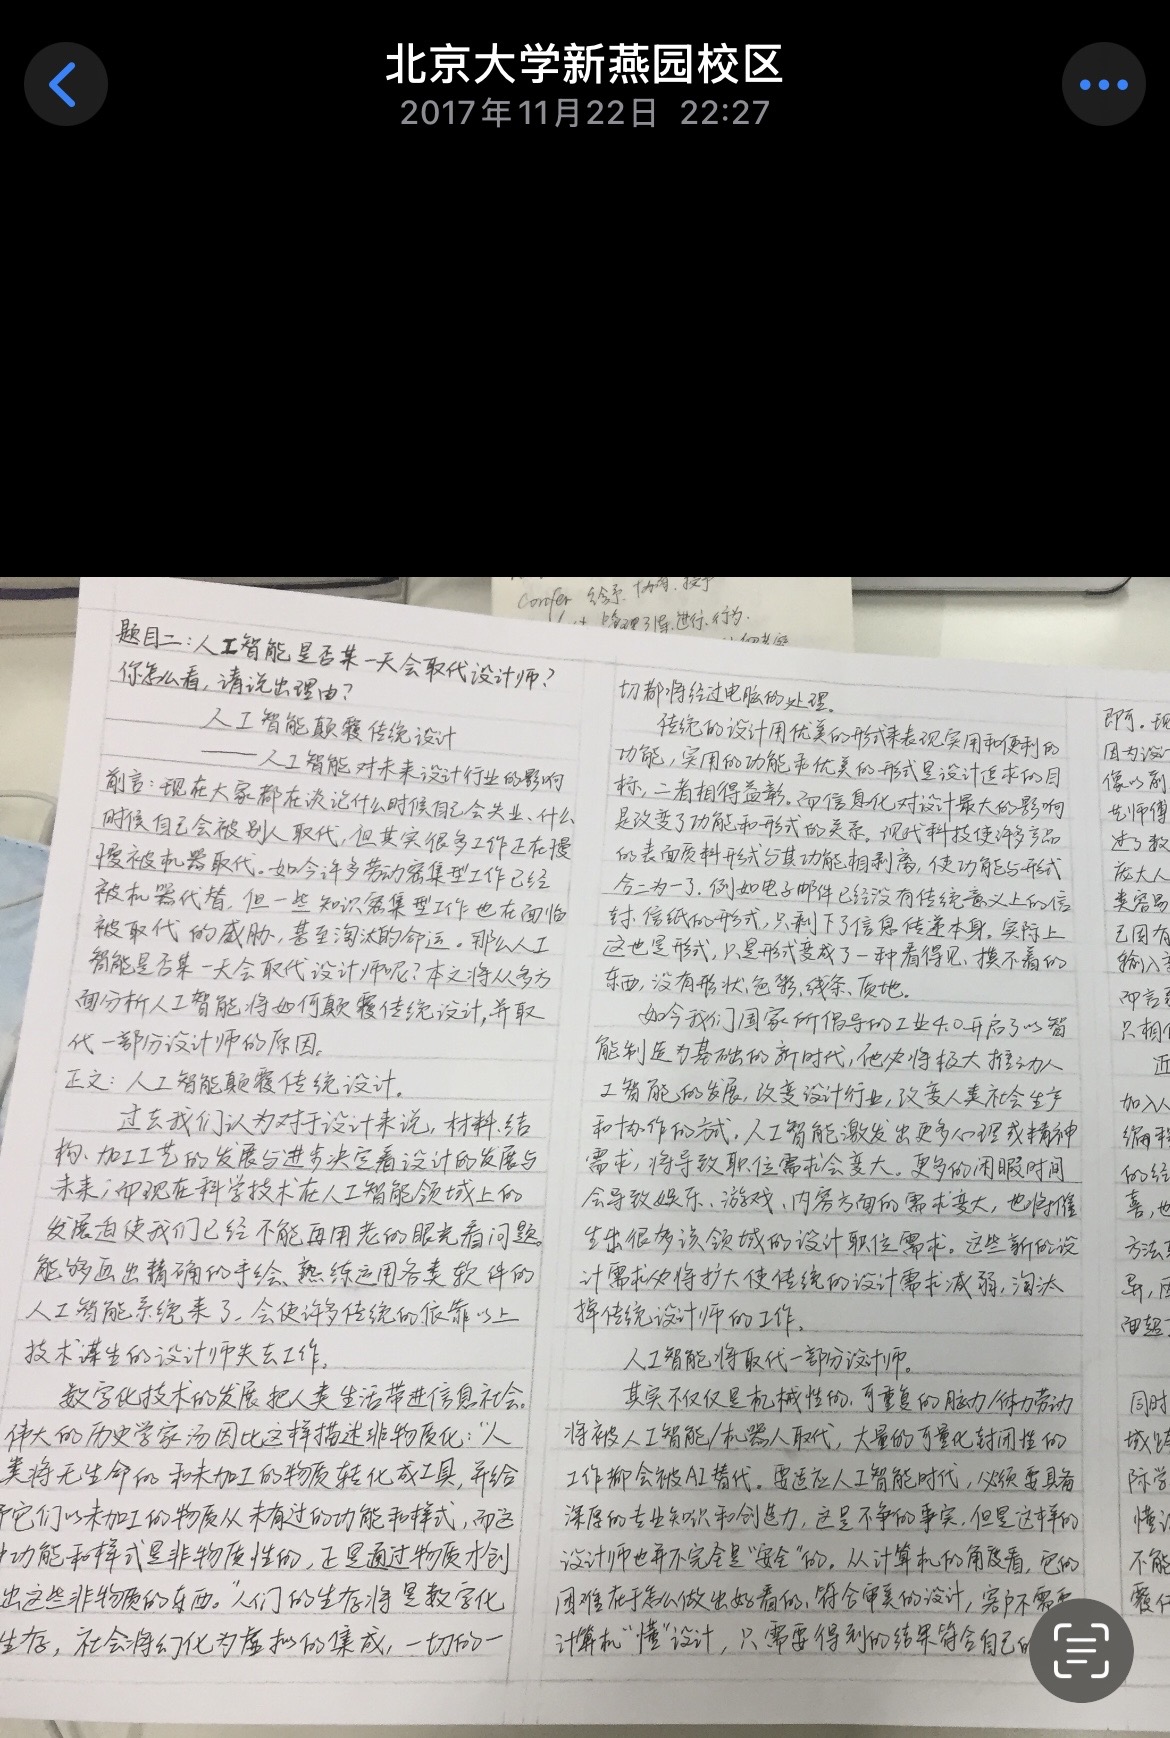 北京大学新燕园校区
2017年11月22日 22:27
confer 给予. 协商. 授予
题目二：人工智能是否某一天会取代设计师？
你怎么看，请说出理由？
人工智能颠覆传统设计
——人工智能对未来设计行业的影响
前言：现在大家都在谈论什么时候自己会失业、什么
时候自己会被别人取代，但其实很多工作正在慢
慢被机器取代。如今许多劳动密集型工作已经
被机器代替，但一些知识密集型工作也在面临
被取代的威胁，甚至淘汰的命运。那么人工
智能是否某一天会取代设计师呢？本文将从多方
面分析人工智能将如何颠覆传统设计，并取
代一部分设计师的原因。
正文：人工智能颠覆传统设计。
过去我们认为对于设计来说，材料、结
构、加工工艺的发展与进步决定着设计的发展与
未来；而现在科学技术在人工智能领域上的
发展迫使我们已经不能再用老的眼光看问题。
能够画出精确的手绘、熟练运用各类软件的
人工智能系统来了，会使许多传统的依靠以上
技术谋生的设计师失去工作。
数字化技术的发展把人类生活带进信息社会。
伟大的历史学家汤因比这样描述非物质化：“人
类将无生命的和未加工的物质转化成工具，并给
予它们以未加工的物质从未有过的功能和样式，而这
功能和样式是非物质性的，正是通过物质才创
出这些非物质的东西。”人们的生存将是数字化
生存，社会将幻化为虚拟的集成，一切的一
切都将经过电脑的处理。
传统的设计用优美的形式来表现实用和便利的
功能，实用的功能和优美的形式是设计追求的目
标，二者相得益彰。而信息化对设计最大的影响
是改变了功能和形式的关系。现代科技使许多产品
的表面质料形式与其功能相剥离，使功能与形式
合二为一了，例如电子邮件已经没有传统意义上的信
封、信纸的形式，只剩下了信息传递本身。实际上
这也是形式，只是形式变成了一种看得见、摸不着的
东西，没有形状、色彩、线条、质地。
如今我们国家所倡导的工业4.0开启了以智
能制造为基础的新时代，他必将极大推动人
工智能的发展，改变设计行业，改变人类社会生产
和协作的方式。人工智能激发出更多心理或精神
需求，将导致职位需求会变大。更多的闲暇时间
会导致娱乐、游戏、内容方面的需求变大，也将催
生出很多该领域的设计职位需求。这些新的设
计需求必将扩大使传统的设计需求减弱，淘汰
掉传统设计师的工作。
人工智能将取代一部分设计师。
其实不仅仅是机械性的、可重复的脑力/体力劳动
将被人工智能/机器人取代，大量的可量化封闭性的
工作都会被AI替代。要适应人工智能时代，必须要具备
深厚的专业知识和创造力，这是不争的事实，但是这样的
设计师也并不完全是“安全”的。从计算机的角度看，它的
困难在于怎么做出好看的、符合审美的设计，客户不需要
计算机“懂”设计，只需要得到的结果符合自己的
即可。现
因为设计
像以前
类容易
己固有
输入
而言
只相
加入人
编程
的经
喜，也
方法
面超
同时
域
际学
懂设
不能
覆传